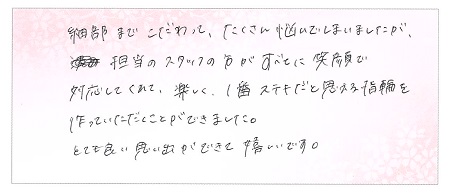 細部まで こだわって、たくさん悩んでしまいましたが、
担当のスタッフの方がすべてに笑顔で
対応してくれて、楽しく、1番ステキだと思える指輪を
作っていただくことができました。
とても良い思い出ができて嬉しいです。